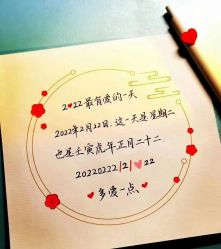 2❤22最有爱的一天
2022年2月22日.这一天是星期二
也是壬寅虎年正月二十二
20220222/2/❤22
❤多爱一点❤